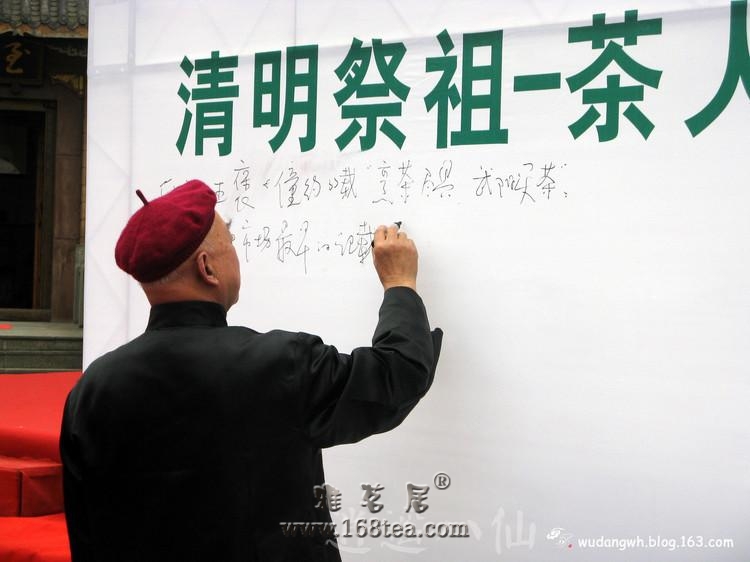 清明祭祖-茶人
王褒《僮约》载"烹茶尽具 武阳买茶"。
市场最早的记载
至
雅茗居®
www.168tea.com
逍遥八仙
wudangwh.blog.163.com